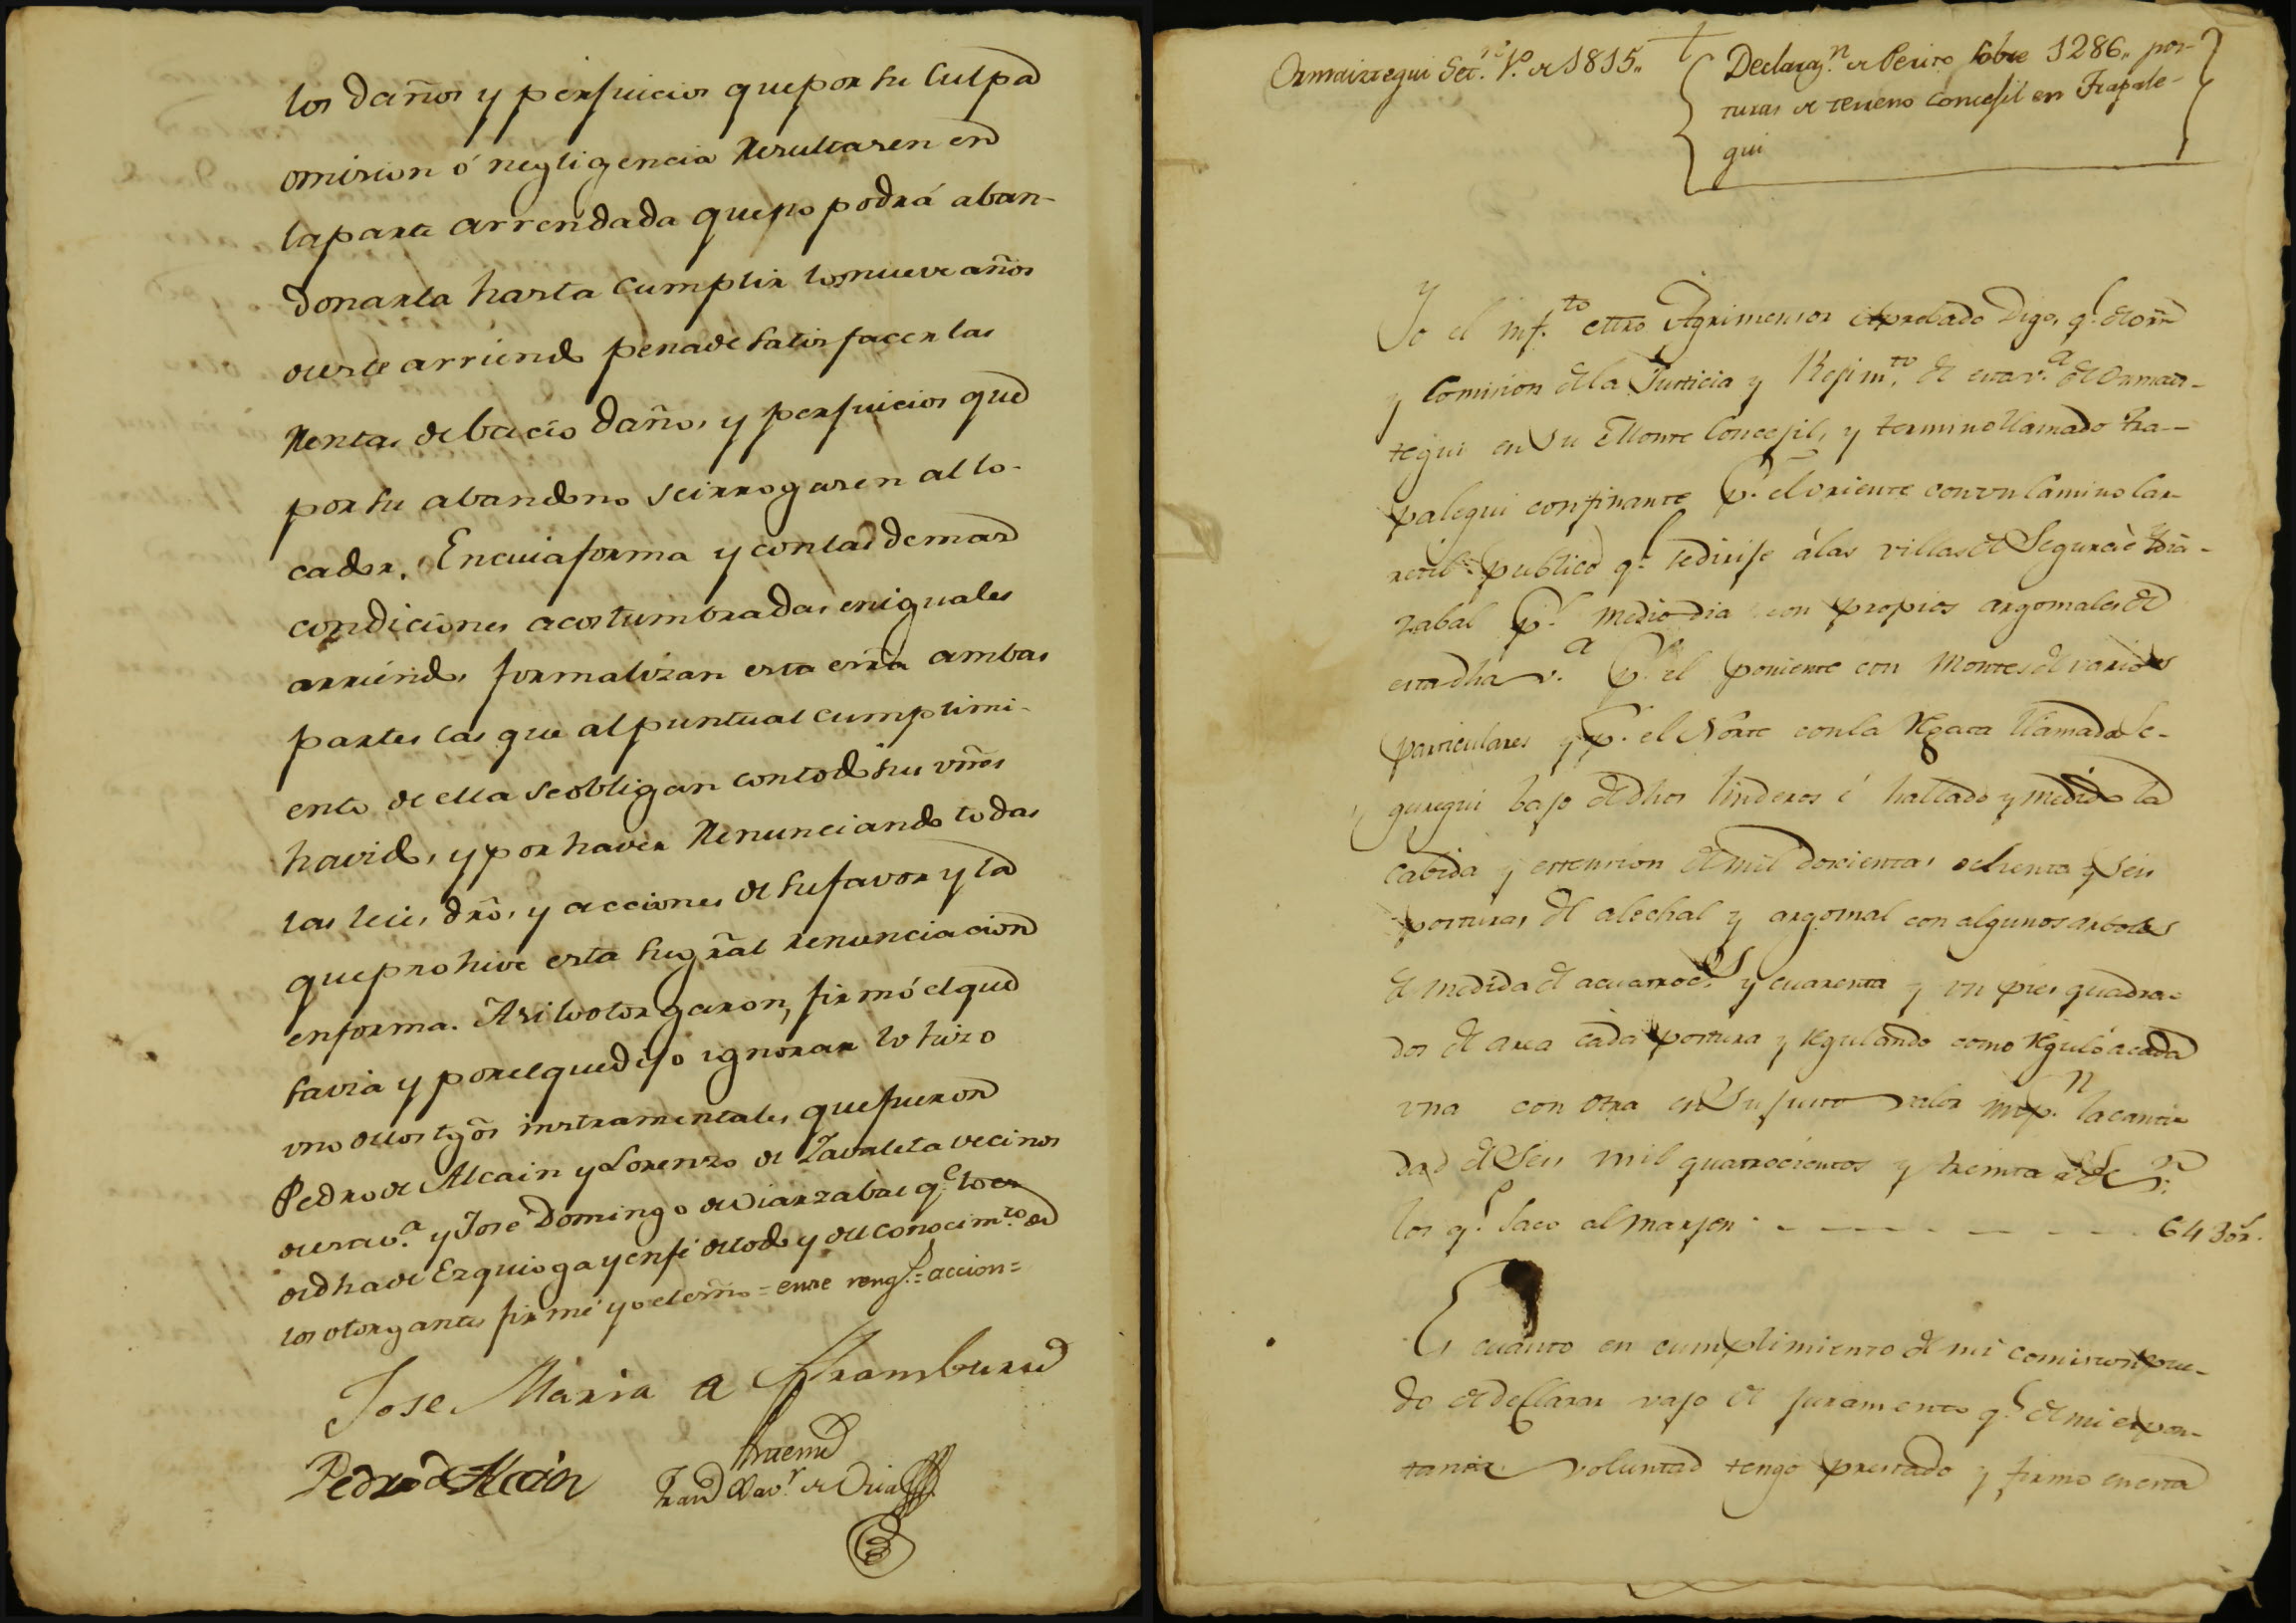 los daños y perjuicios que por su culpa
omision ó negligencia resultaren en
la parte arrendada que no podrá aban-
donarla hasta cumplir los nueve años
de este arriendo pena de satisfacer las
rentas de bacio daños, y perjuicios que
por su abandono se irrogaren al lo-
cador. En cuia forma y con las demas
condiciones acostumbradas en iguales
arriendos formalizan esta esrra ambas
partes las que al puntual cumplimi-
ento de ella se obligan con todos sus vienes
havidos, y por haver renunciando todas
las leies, dros, y acciones de su favor y la
que prohive esta su gral renunciacion
en forma. Asi lo otorgaron, firmó el que
savia y por el que dijo ignorar lo hizo
uno de los tgos instrumentales, que fueron
Pedro de Alcain y Lorenzo de Zavaleta vecinos
de esta v.ª y Jose Domingo de Oiarzabal q.e lo es
de dha de Ezquioga y en fé de todo y del conocim.to de
los otorgantes firmé yo el esno = entre reng.s = accion =
Jose Maria de Aramburu
Pedro de Alcain
Antemi
Fran.co Xav.r de Oria
Ormaiztegui Set.re 1.º de 1815,,
Declaraz.n de Perito sobre 1286,, pos-
turas de terreno concejil en Trapale-
gui
Yo el inf.to Mro Agrimensor aprobado Digo, q.e de orn
y Comision de la Justicia y Regim.to de esta v.ª de Ormaiz-
tegui en su Monte Concejil, y termino llamado Tra-
palegui confinante p.r el oriente con un Camino car-
retil publico q.e se dirije á las villas de Segura é Idia-
zabal p.r medio dia con propios argomales de
esta dha v.ª p.r el poniente con Montes de varios
particulares y p.r el Norte con la regata llamada Se-
guregui bajo de dhos linderos é hallado y medido la
cabida y estension de mil doscientas ochenta y seis
posturas de alechal y argomal con algunos arboles
de medida de a cuatroc.s y cuarenta y un pies quadra-
dos de area cada postura y regulando como reguló a cada
una con otra en su justo valor imp.n la canti-
dad de seis mil quatrocientos y treinta r.s de v.n
los q.e saco al marjen - - - - - - - 6430 r.
Es cuanto en cumplimiento de mi comision pue-
do de declarar vajo de juramento q.e de mi espon-
tanea voluntad tengo prestado y firmo en esta